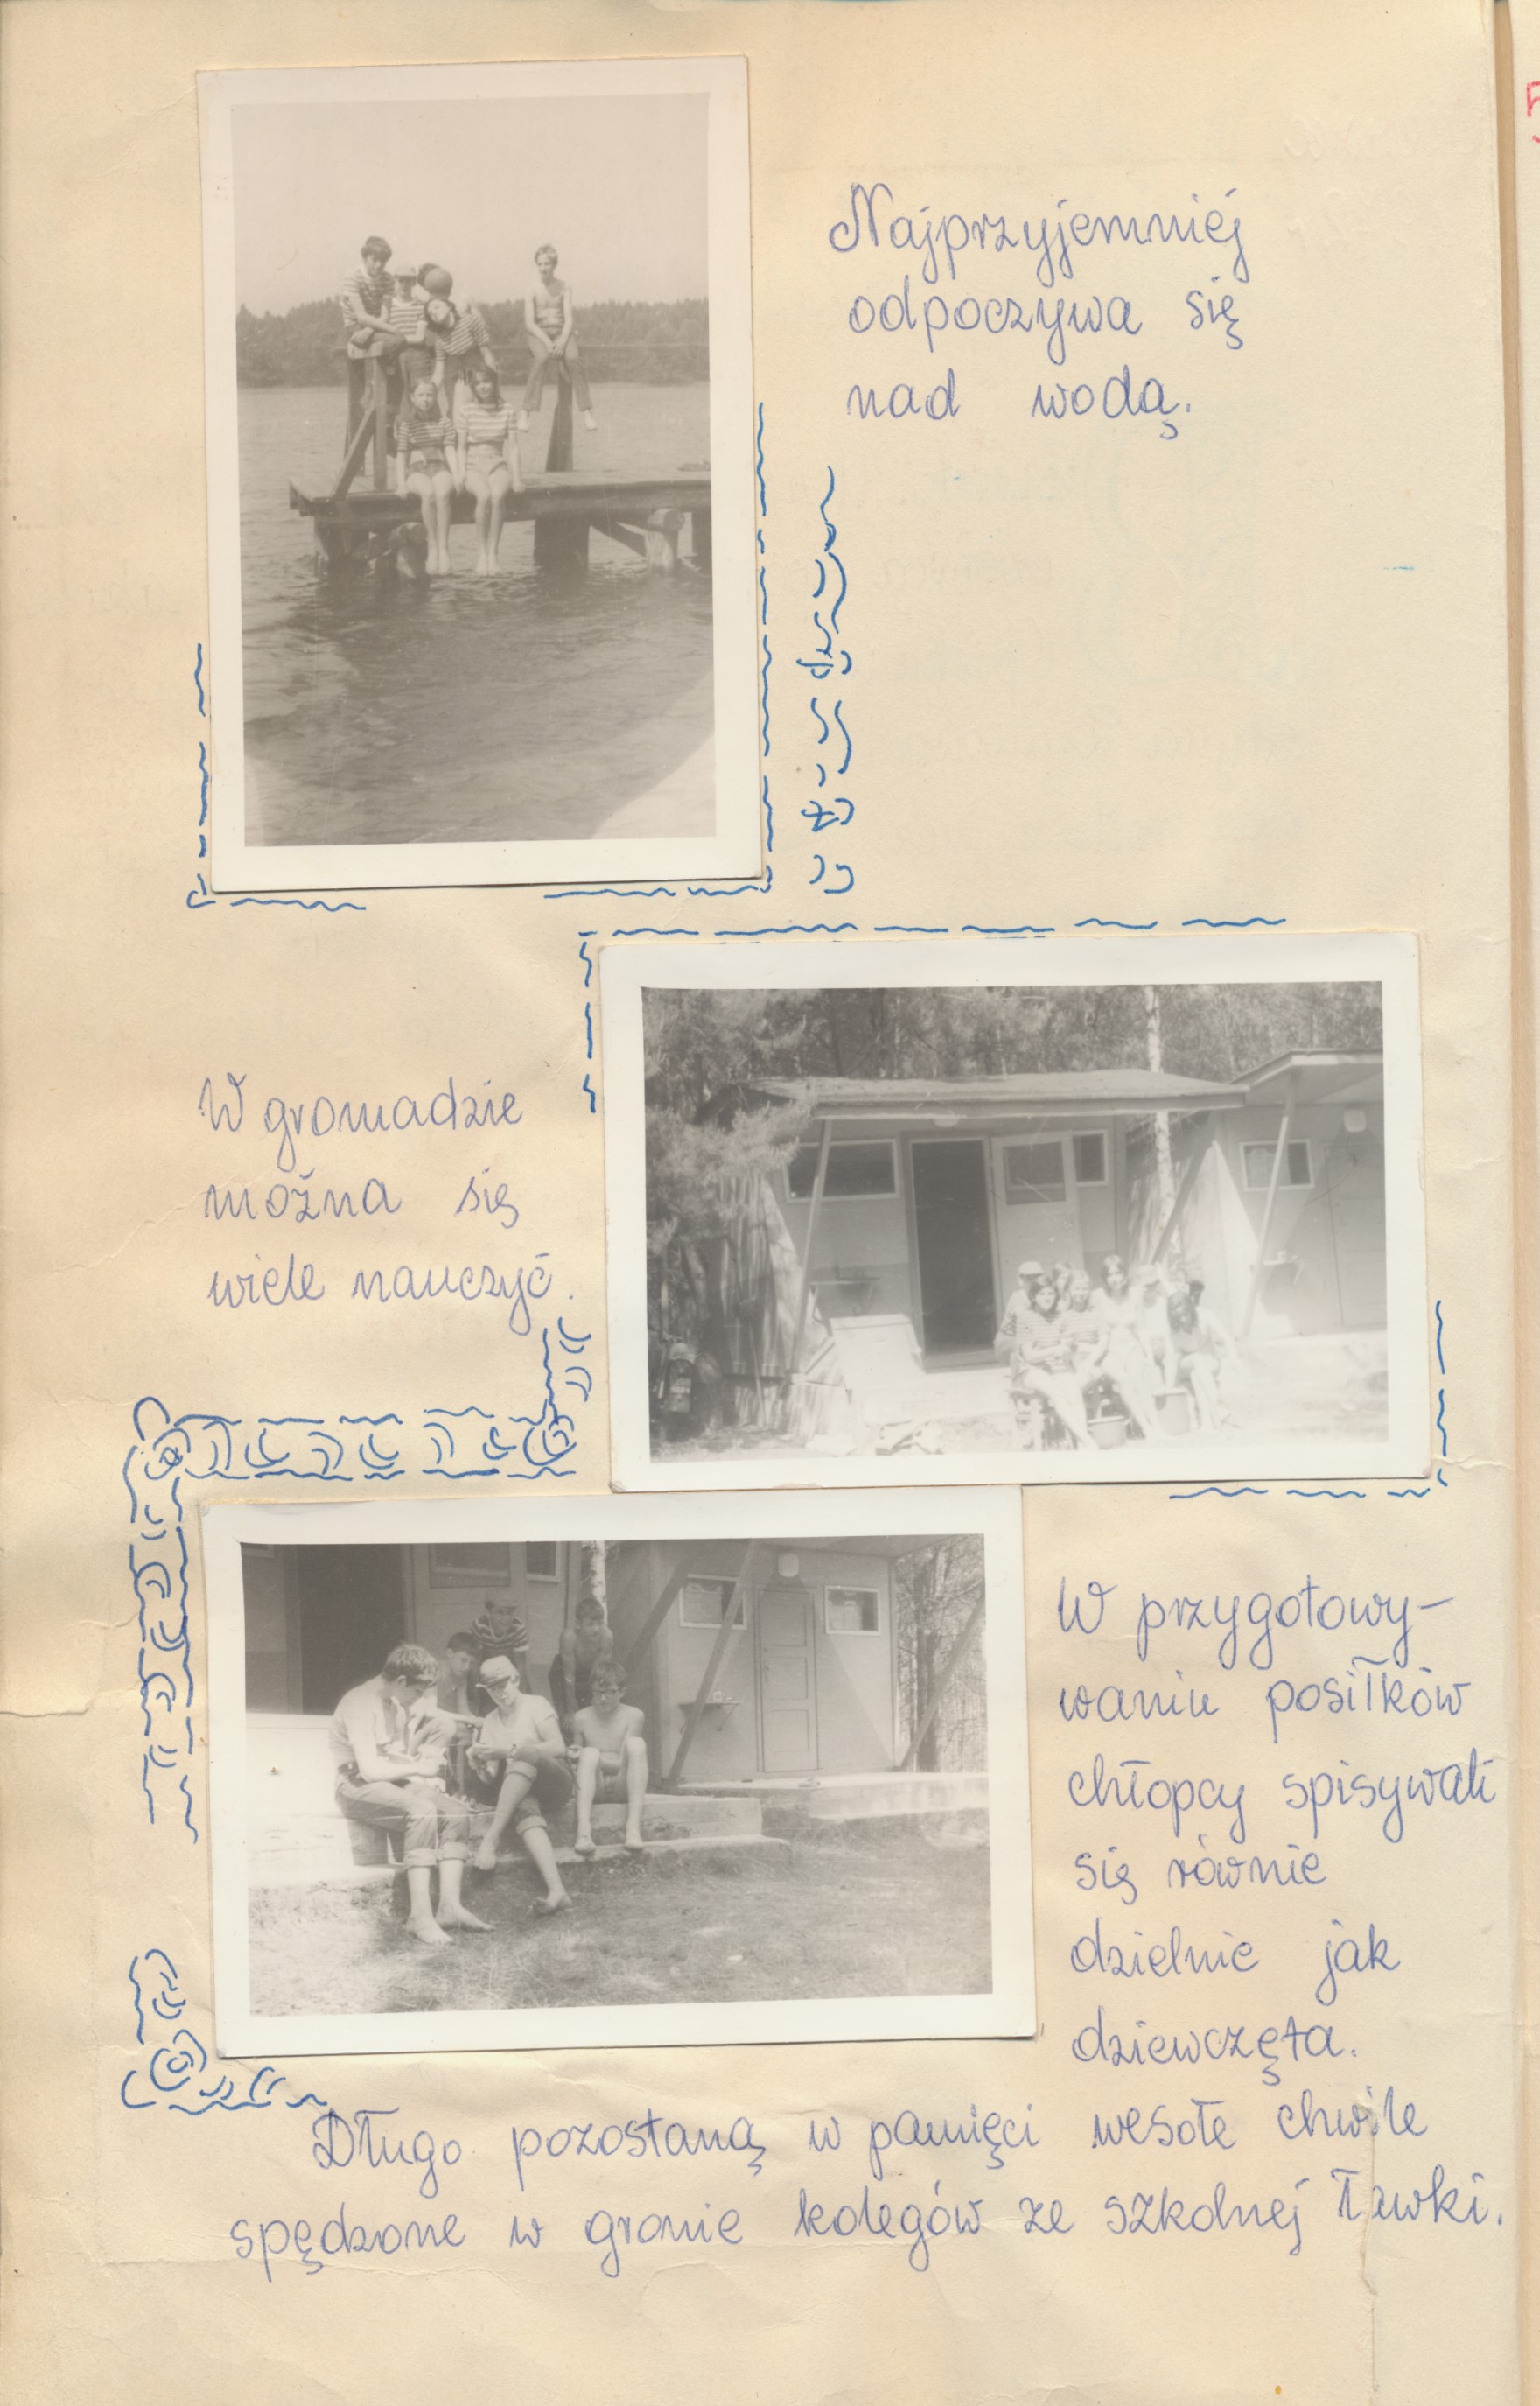 Najprzyjemniej
odpoczywa się
nad wodą.
W gromadzie
można się
wiele nauczyć.
W przygotowy-
waniu posiłków
chłopcy spisywali
się równie
dzielnie jak
dziewczęta.
Długo pozostaną w pamięci wesołe chwile
spędzone w gronie kolegów ze szkolnej ławki.